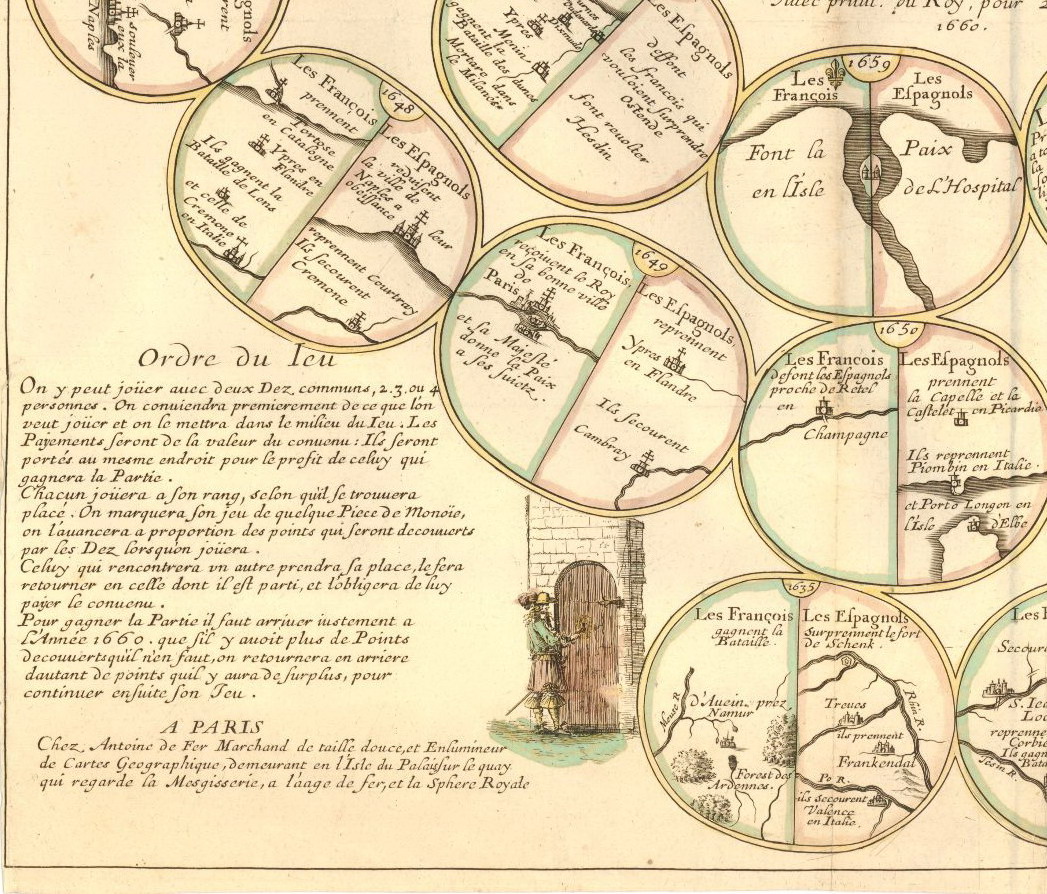 Avec privil. du Roy, pour
1660.
Naples
soulever
Espagnols
gagnent la
Bataille des Dunes
Mortare, dans
le Milanés
Ypres
Menin
Les Espagnols
deffont
les françois qui
vouloient surprendre
Ostende
font revolter
Hesdin
1659
Les
François
Les
Espagnols
Font la
Paix
en l'Isle
de L'Hospital
1648
Les François
prennent
Tortose
en Catalogne
Ypres en
Flandre
Ils gagnent la
Bataille de Lens
et celle de
Cremone
en Italie
Les Espagnols
reduisent
la ville de
Naples a
leur
obeissance
reprennent Courtray
Ils secourent
Cremone
1649
Les François
reçoiuent le Roy
en sa bonne ville
de
Paris
et sa Majesté
donne la Paix
a ses sujetz.
Les Espagnols
reprennent
Ypres
en Flandre
Ils secourent
Cambray
1650
Les François
defont les Espagnols
proche de Retel
en
Champagne
Les Espagnols
prennent
la Capelle et le
Castelet en Picardie
Ils reprennent
Piombin en Italie.
et Porto Longon en
l'Isle d'Elbe
Ordre du Ieu
On y peut joüer auec deux Dez communs, 2.3. ou 4
personnes. On conuiendra premierement de ce que l'on
veut joüer et on le mettra dans le milieu du Ieu. Les
Payements seront de la valeur du conuenu: Ils seront
portés au mesme endroit pour le profit de celuy qui
gagnera la Partie.
Chacun joüera a son rang, selon qu'il se trouuera
placé. On marquera son jeu de quelque Piece de Monoie,
on l'auancera a proportion des points qui seront decouuerts
par les Dez lorsqu'on joüera.
Celuy qui rencontrera vn autre prendra sa place, le fera
retourner en celle dont il est parti, et l'obligera de luy
payer le conuenu.
Pour gagner la Partie il faut arriuer iustement a
l'Année 1660. que s'il y auoit plus de Points
decouuerts qu'il n'en faut, on retournera en arriere
dautant de points qu'il y aura de surplus, pour
continuer ensuite son Ieu.
A PARIS
Chez Antoine de Fer Marchand de taille douce, et Enlumineur
de Cartes Geographique, demeurant en l'Isle du Palais sur le quay
qui regarde la Mesgisserie, a l'âage de fer, et la Sphere Royale
1635
Les François
gagnent la
Bataille
d'Auein préz
Namur
Meuse R
Forest des
Ardennes.
Les Espagnols
Surprennent le fort
de Schenk.
Rhin R.
Treues
ils prennent
Frankendal
Po R.
ils secourent
Valence
en Italie.
Secour
S. Iea
reprenne
Corbie
Ils gagn
Tesin R.